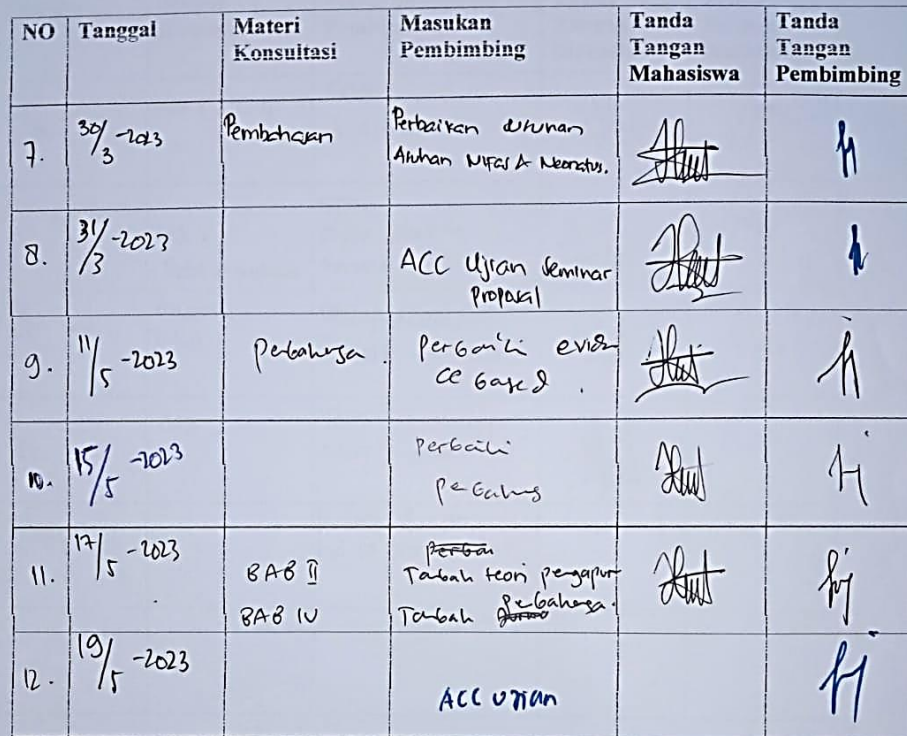 NO Tanggal Materi Konsultasi Masukan Pembimbing Tanda Tangan Mahasiswa Tanda Tangan Pembimbing
7. 30/3 -2023 Pembahasan Perbaikan
Asuhan Nifas & Neonatus.
8. 31/3 -2023 ACC Ujian Seminar
Proposal
9. 11/5 -2023 Perbaiki eviden
ce based.
10. 15/5 -2023 Perbaiki
11. 17/5 -2023 BAB II Tambah teori
BAB IV Tambah
12. 19/5 -2023 ACC Ujian